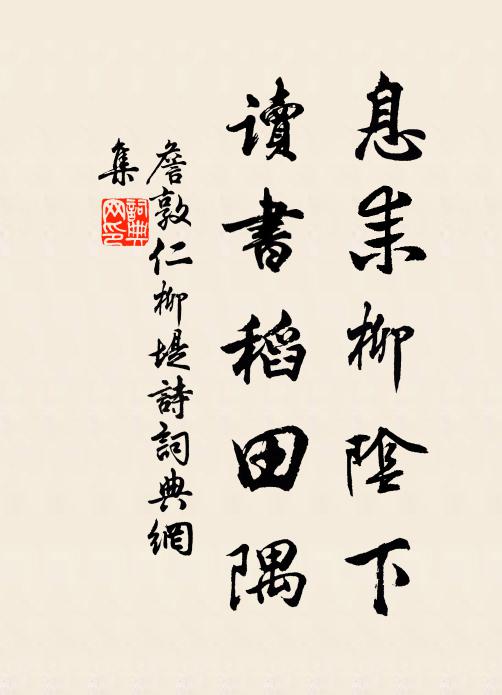 息耒柳陰下
讀書稻田隅
詹敦仁柳堤詩詞典網
集
詞典網印